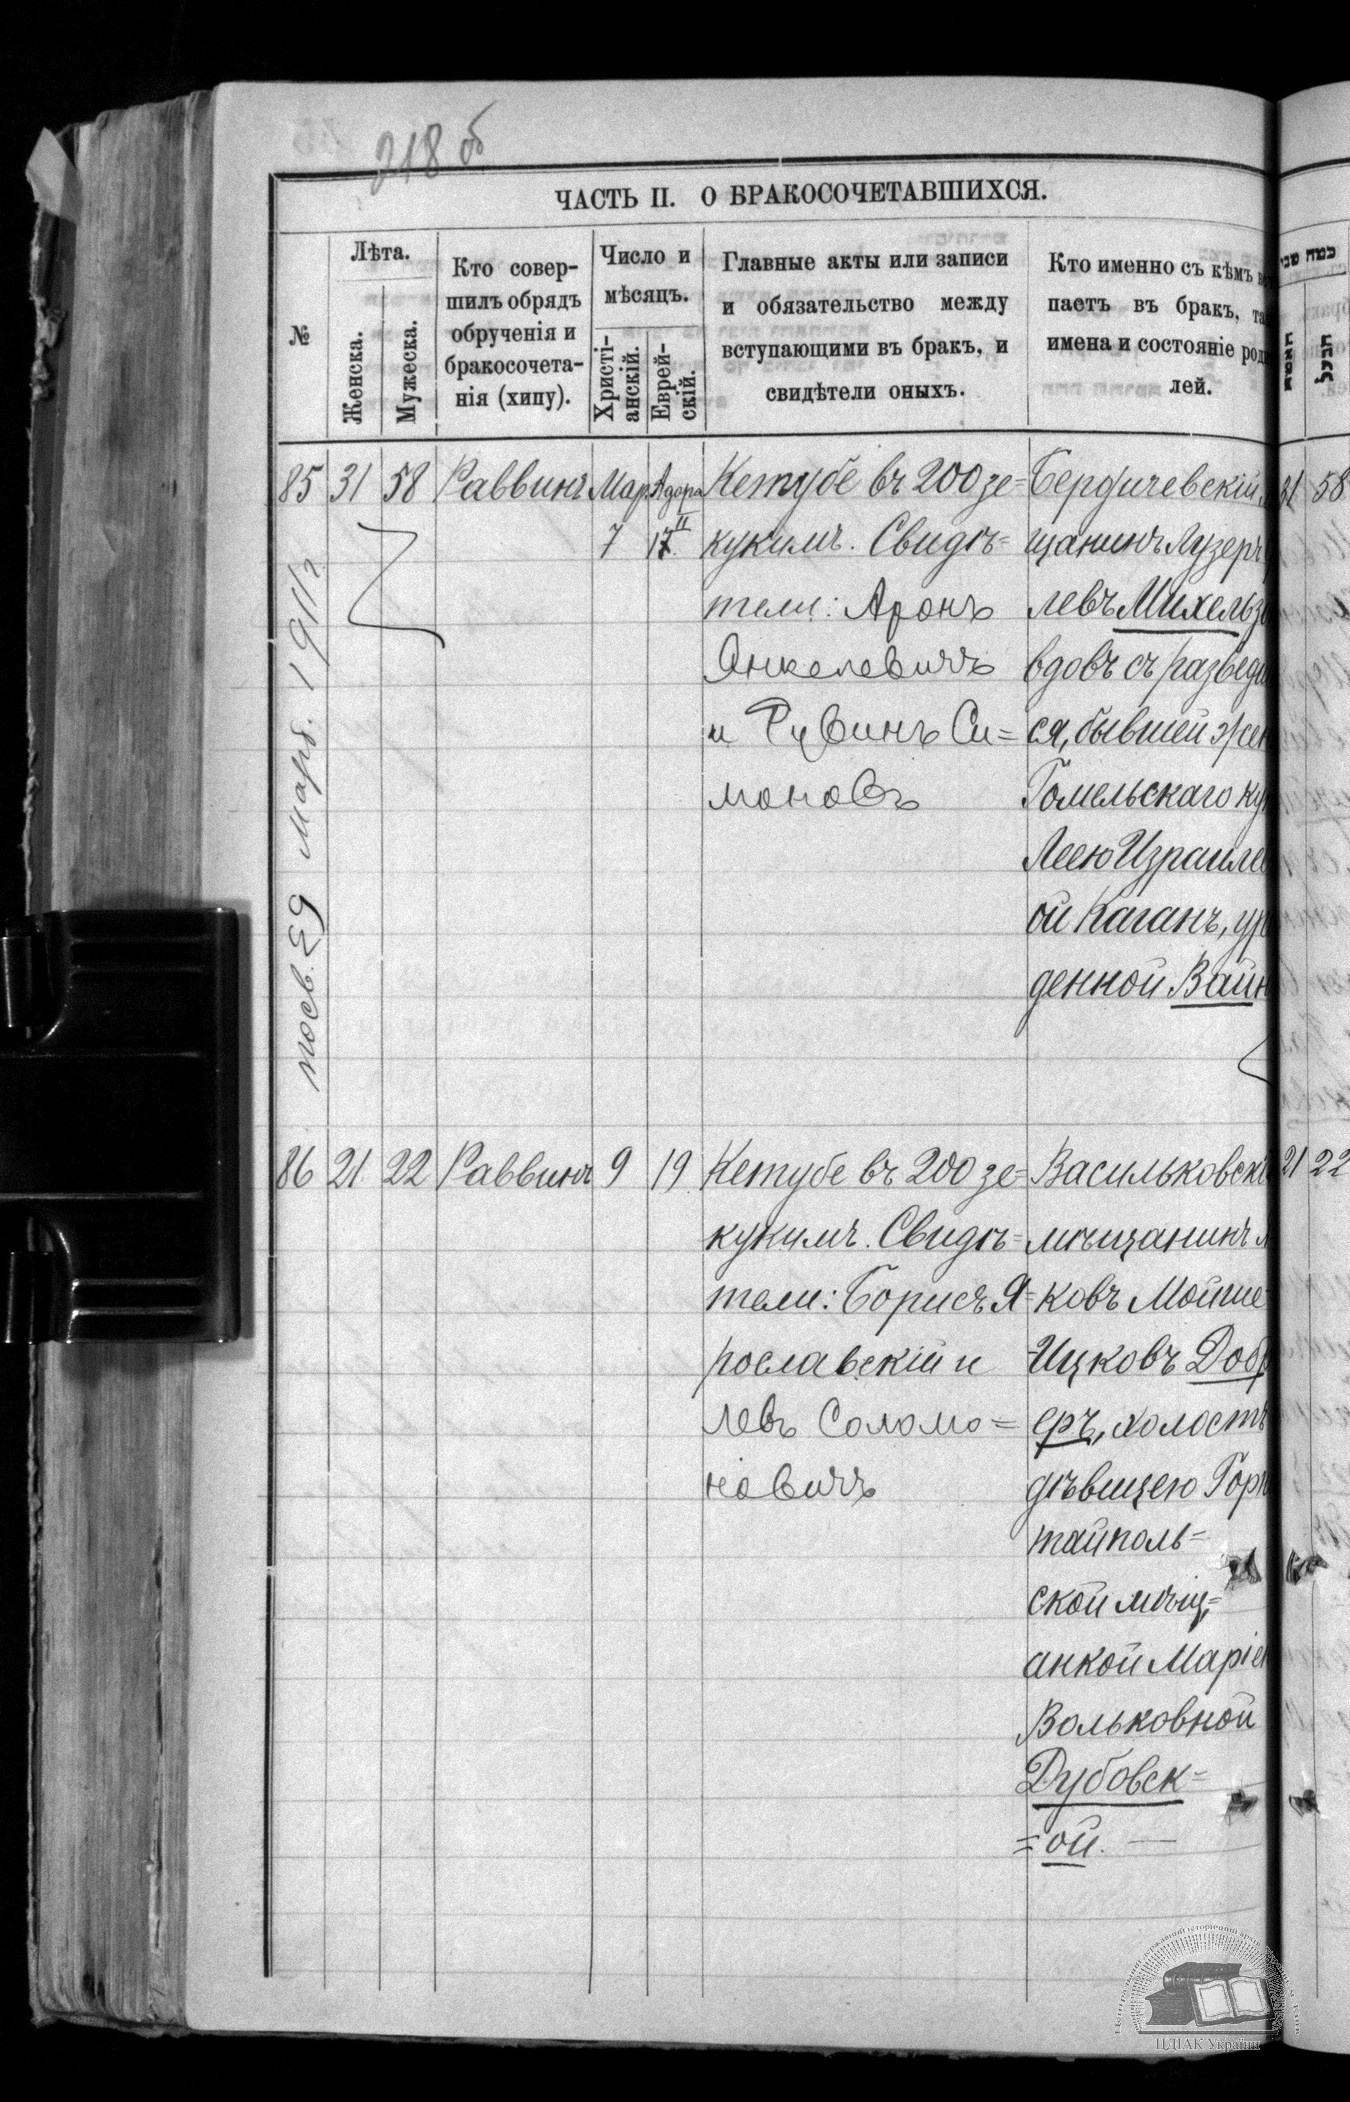 218 об
ЧАСТЬ II. О БРАКОСОЧЕТАВШИХСЯ.
№
Лѣта.
Женска.
Мужеска.
Кто совер-
шилъ обрядъ
обрученія и
бракосочета-
нія (хипу).
Число и
мѣсяцъ.
Христі-
анскій.
Еврей-
скій.
Главные акты или записи
и обязательство между
вступающими въ бракъ, и
свидѣтели оныхъ.
Кто именно съ кѣмъ
паетъ въ бракъ,
имена и состояніе
лей.
85 31 58 Раввинъ Мар. Адара
7 II 17.
Кетубе въ 200 зе=
кукимъ. Свидѣ=
тели: Аронъ
Янкелевичъ
и Рувинъ Си=
моновъ
Бердичевскій
щанинъ Лузеръ
левъ Михельзо
вдовъ съ разведш
ся, бывшей жен
Гомельскаго куп
Леею Израилев
ой Каганъ, ур
денной Вайн
Март. 1911 г.
86 21 22 Раввинъ 9 19
Кетубе въ 200 зе=
кукимъ. Свидѣ=
тели: Борисъ Я=
рославскій и
Левъ Соломо=
новичъ
Васильковскі
мѣщанинъ
ковъ Мойше
-Ицковъ Добр
еръ, холостъ
дѣвицею Горн
тайполь=
ской мѣщ=
анкой Маріей
Вольковной
Дубовск=
=ой.
כמה שני
31 58
21 22
ЦДІАК України